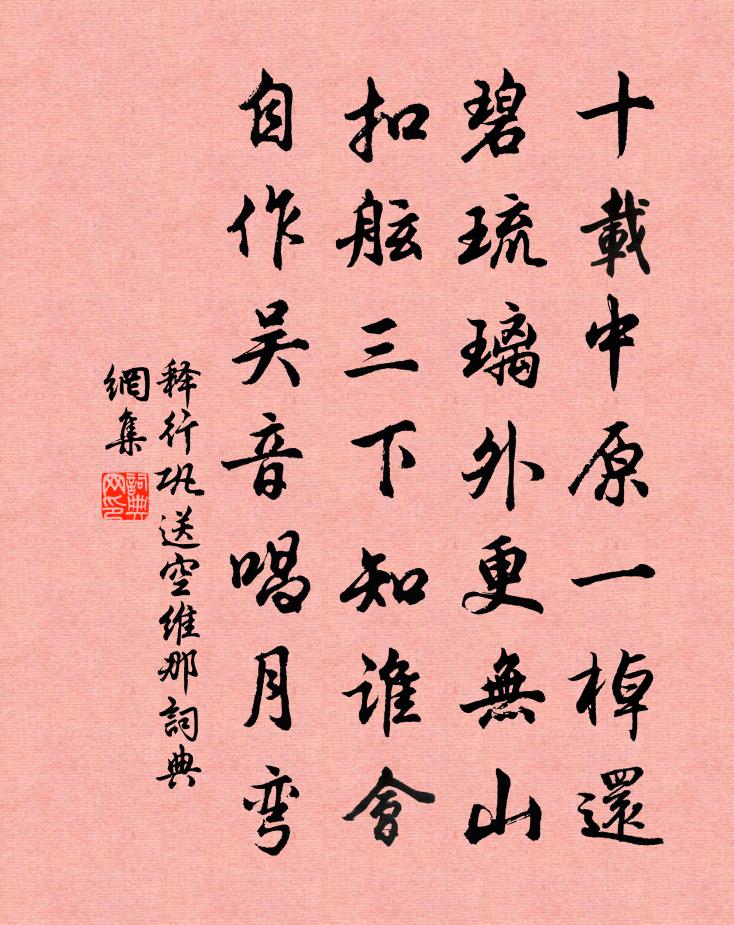 十載中原一棹還
碧琉璃外更無山
扣舷三下知誰會
自作吴音唱月弯
释行巩送空维那詞典
網集
詞典网印